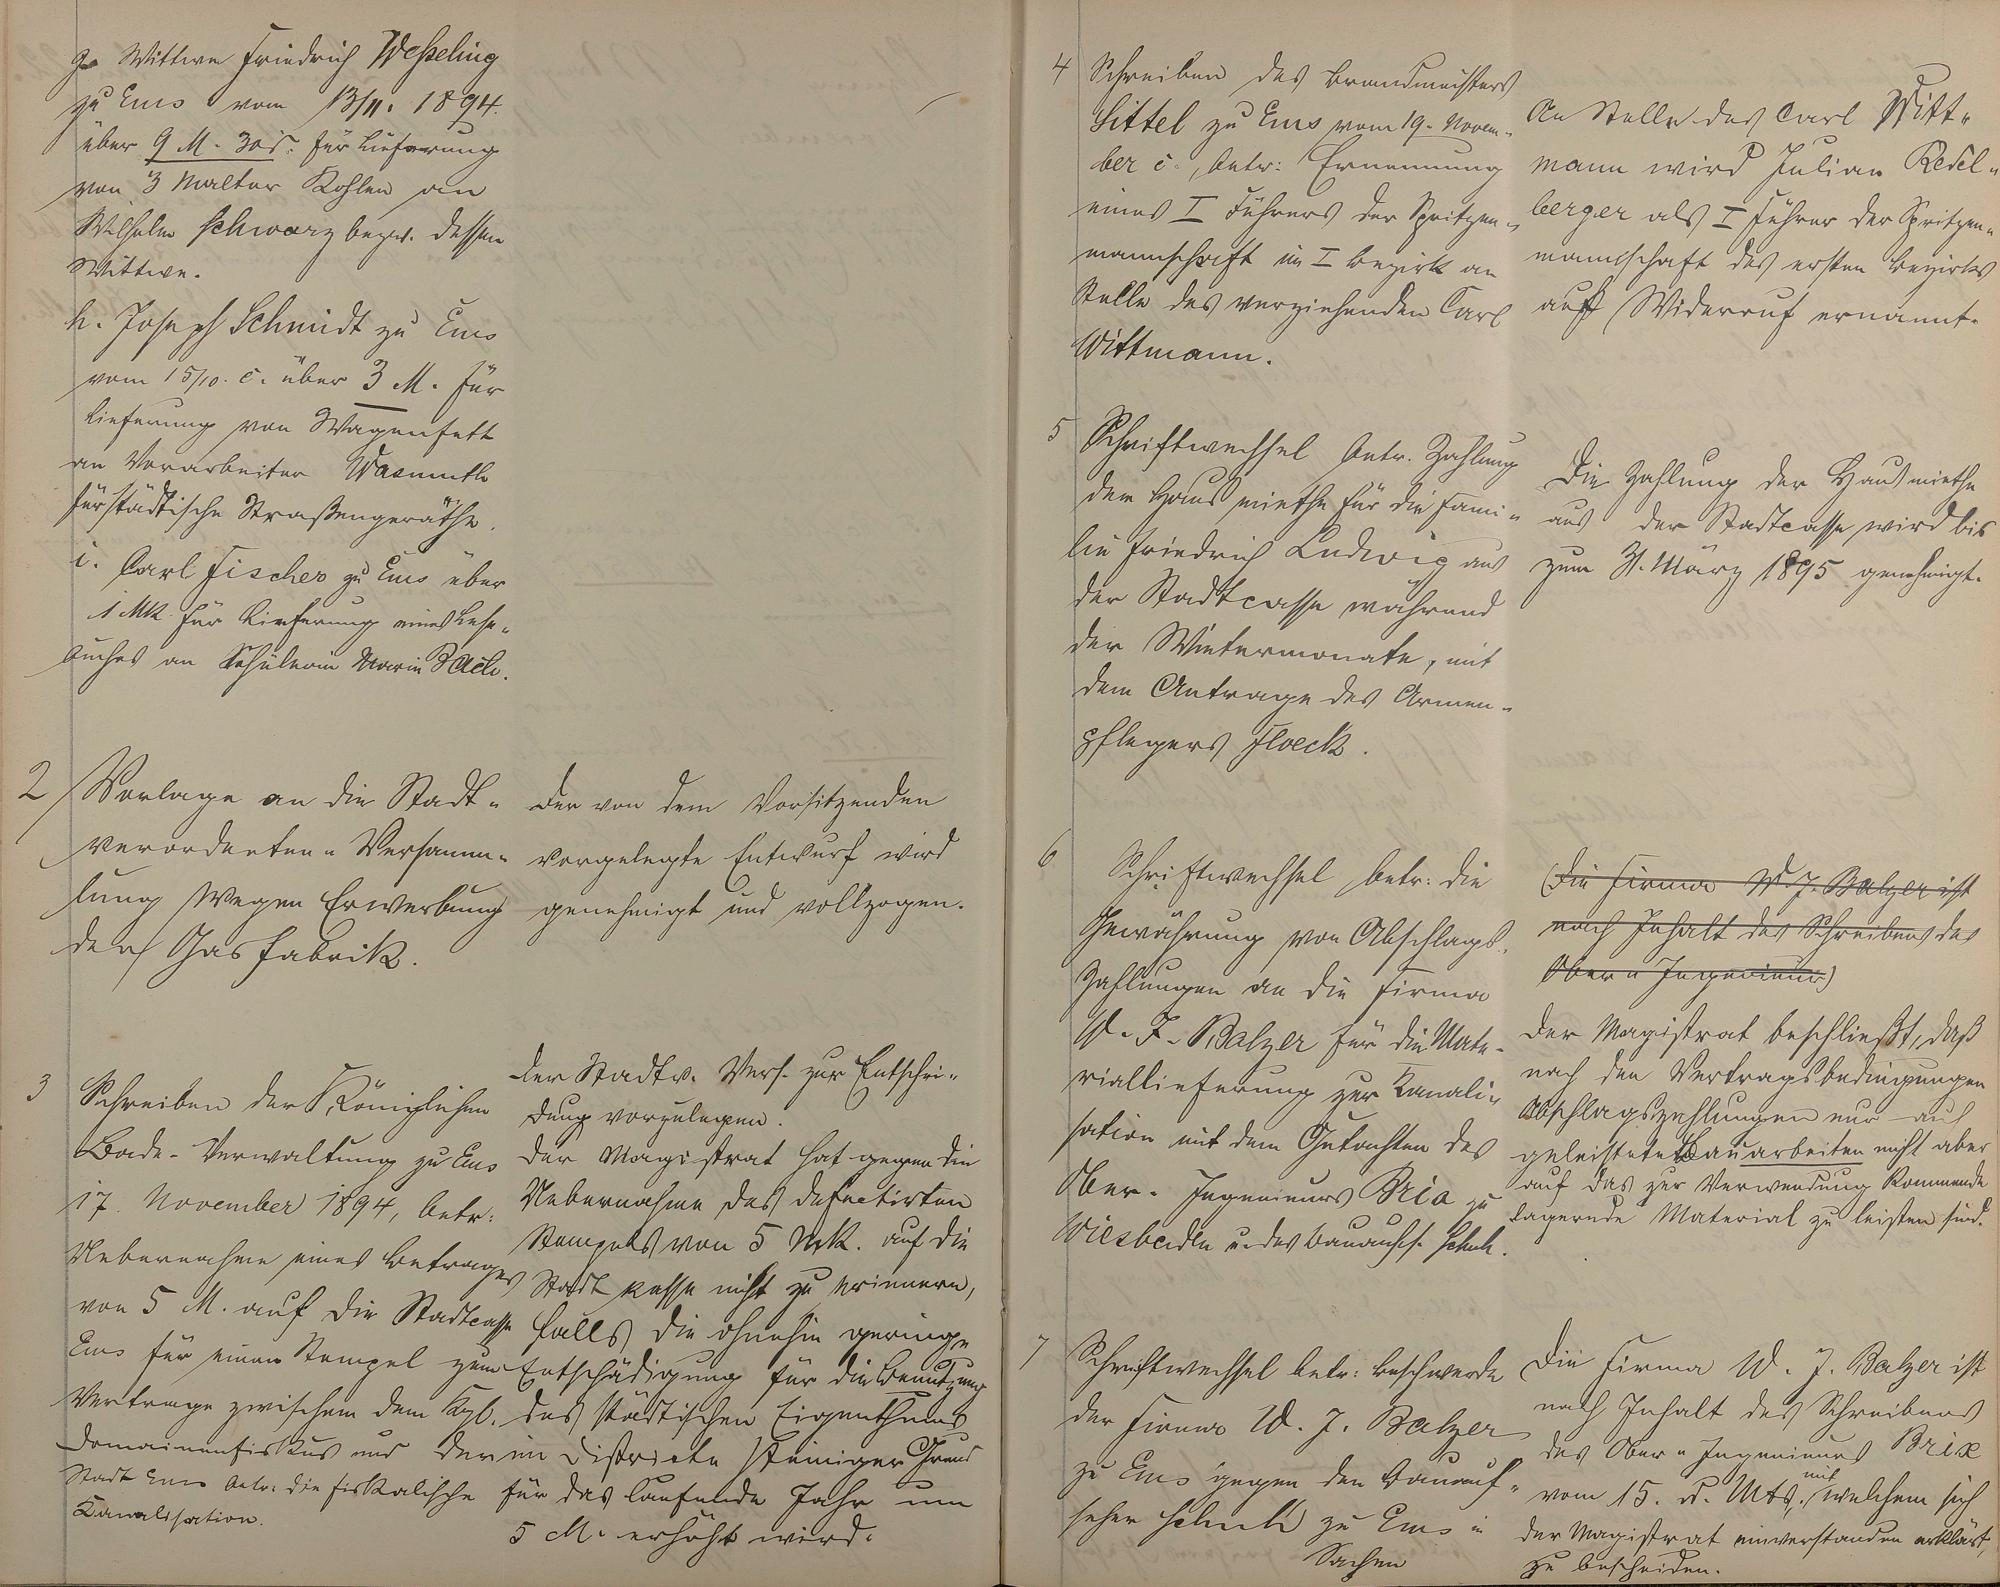 g. Wittwe Friedrich Weßeling
zu Ems vom 13/11. 1894.
über 9 M. 30 d. für Lieferung
von 3 Malter Kohlen an
Wilhelm Schwarz bezw. dessen
Wittwe.
h. Joseph Schmidt zu Ems
vom 15/10. c. über 3 M. für
Lieferung von Wagenfett
an Vorarbeiter Wasmuth
für städtische Straßengeräthe.
i. Carl Fischer zu Ems über
1 Mk für Lieferung eines Lese-
buches an Schülerin Marie Bach.
2 Vorlage an die Stadt-
verordneten-Versamm-
lung wegen Erwerbung
der Gasfabrik.
Der von dem Vorsitzenden
vorgelegte Entwurf wird
genehmigt und vollzogen.
3 Schreiben der Königlichen
Bade-Verwaltung zu Ems
17. November 1894, betr:
Uebernahme eines Betrages
von 5 M. auf die Stadtcasse
Ems für einen Stempel zum
Vertrage zwischen dem Kgl.
Domainenfiskus und der
Stadt Ems betr: die fiskalische
Kanalisation.
Der Stadtv. Vers. zur Entschei-
dung vorzulegen.
Der Magistrat hat gegen die
Uebernahme des defectirten
Stempels von 5 Mk. auf die
Stadtkasse nicht zu erinnern,
falls die ohnehin geringe
Entschädigung für die Benutzung
des städtischen Eigenthums
im Districte steiniger Grund
für das laufende Jahr um
5 M. erhöht wird.
4 Schreiben des Brandmeisters
Sittel zu Ems vom 19. Novem-
ber c., betr: Ernennung
eines I Führers der Spritzen-
mannschaft im I Bezirk an
Stelle des verziehenden Carl
Wittmann.
An Stelle des Carl Witt-
mann wird Julian Redel-
berger als I Führer der Spritzen-
mannschaft des ersten Bezirks
auf Widerruf ernannt.
5 Schriftwechsel betr. Zahlung
der Hausmiethe für die Fami-
lie Friedrich Ludwig aus
der Stadtcasse während
der Wintermonate, mit
dem Antrage des Armen-
pflegers Floeck.
Die Zahlung der Hausmiethe
aus der Stadtcasse wird bis
zum 31. März 1895 genehmigt.
6 Schriftwechsel betr: die
Gewährung von Abschlags-
zahlungen an die Firma
W. J. Balzer für die Mate-
riallieferung zur Kanali-
sation mit dem Gutachten des
Ober-Ingenieurs Brix zu
Wiesbaden u. des Bauaufs. Schuh.
(Die Firma W. J. Balzer ist
nach Inhalt des Schreibens des
Ober-Ingenieurs)
Der Magistrat beschließt, daß
nach den Vertragsbedingungen
Abschlagszahlungen nur auf
geleistete Bauarbeiten nicht aber
auf das zur Verwendung kommende
lagernde Material zu leisten sind.
7 Schriftwechsel betr: Beschwerde
der Firma W. J. Balzer
zu Ems gegen den Bauauf-
seher Schuh zu Ems in
Sachen
Die Firma W. J. Balzer ist
nach Inhalt des Schreibens
des Ober-Ingenieurs Brix
vom 15. d. Mts., mit welchem sich
der Magistrat einverstanden erklärt,
zu bescheiden.